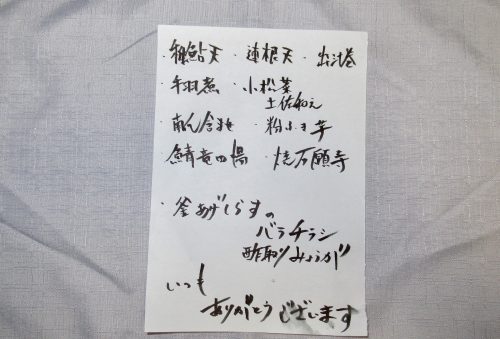 ・稚鮎天 ・連根天 ・出汁巻
・牛羽煮 ・小松菜
土佐和え
・南瓜含ませ ・粉ふき芋
鯖竜田揚 ・焼万願寺
・釜あげしらすの
バラチラシ
酢取りみょうが
いつも
ありがとうございます